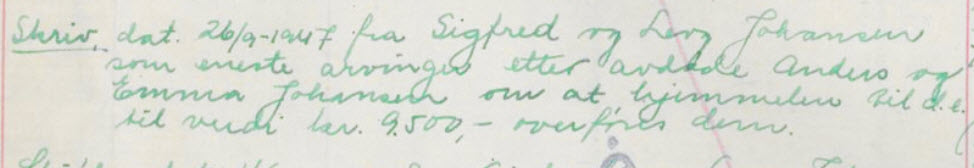 Skriv, dat. 26/9-1947 fra Sigfred og Leog Johansen
som eneste arvinger etter avdøde Anders og
Emma Johansen om at hjemmelen til d.e.
til verdi kr. 9.500,- overføres dem.